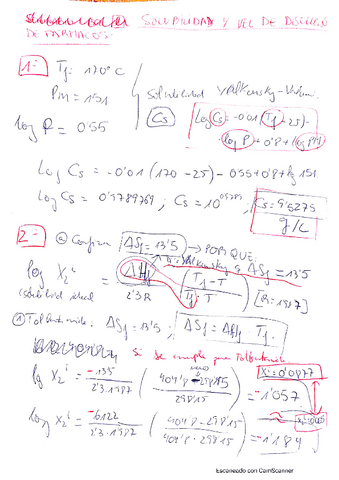 SOLUBILIDAD Y VEL DE DISOLUCIÓN
DE FÁRMACOS:
1: Tf = 170°C
PM = 151
log P = 0'55
Solubilidad Yalkowsky-
Cs
log Cs = -0'01 (Tf - 25) -
log P + 0'8 + log PM
log Cs = -0'01 (170 - 25) - 0'55 + 0'8 + lg 151
log Cs = 0'9789769 ; Cs = 10^0'9789 ; Cs = 9'5275
g/L
2- ΔSf = 13'5 → PORQUE
Yalkowsky ΔSf = 13'5
log X2^i = ΔHf / 2'3R (Tf - T / Tf · T) [R = 1'987]
(solubilidad ideal
① Tolbutamida: ΔSf = 13'5 ; ΔSf = ΔHf Tf.
si se cumple para Tolbutamida
log X2^i = -13'5 / 2'3·1'987 (404'8 - 298'15 / 298'15) = -1'057
X2^i = 0'0877
log X2^i = -6122 / 2'3·1'987 (404'8 - 298'15 / 404'8 · 298'15) = -1'184
Escaneado con CamScanner